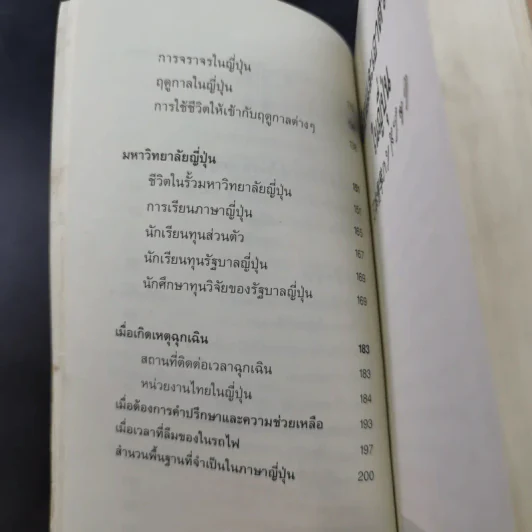 การจราจรในญี่ปุ่น
ฤดูกาลในญี่ปุ่น
การใช้ชีวิตให้เข้ากับฤดูกาลต่างๆ
มหาวิทยาลัยญี่ปุ่น
ชีวิตในรั้วมหาวิทยาลัยญี่ปุ่น 151
การเรียนภาษาญี่ปุ่น 151
นักเรียนทุนส่วนตัว 165
นักเรียนทุนรัฐบาลญี่ปุ่น 167
นักศึกษาทุนวิจัยของรัฐบาลญี่ปุ่น 169
169
เมื่อเกิดเหตุฉุกเฉิน 183
สถานที่ติดต่อเวลาฉุกเฉิน 183
หน่วยงานไทยในญี่ปุ่น 184
เมื่อต้องการคำปรึกษาและความช่วยเหลือ 193
เมื่อเวลาที่ลืมของในรถไฟ 197
สำนวนพื้นฐานที่จำเป็นในภาษาญี่ปุ่น 200